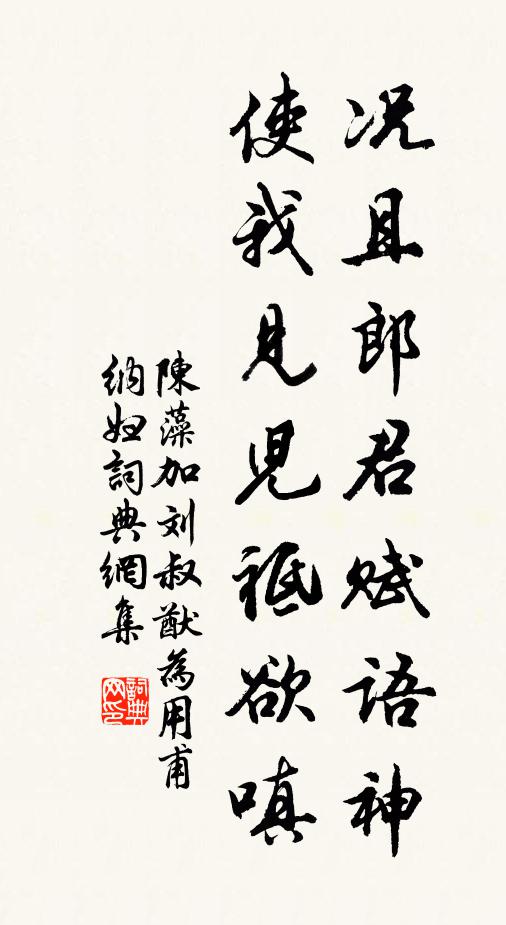 况且郎君赋语神
使我見児祗欲嗔
陳藻加刘叔猷為用甫
納妇詞典網集
詞典
网印